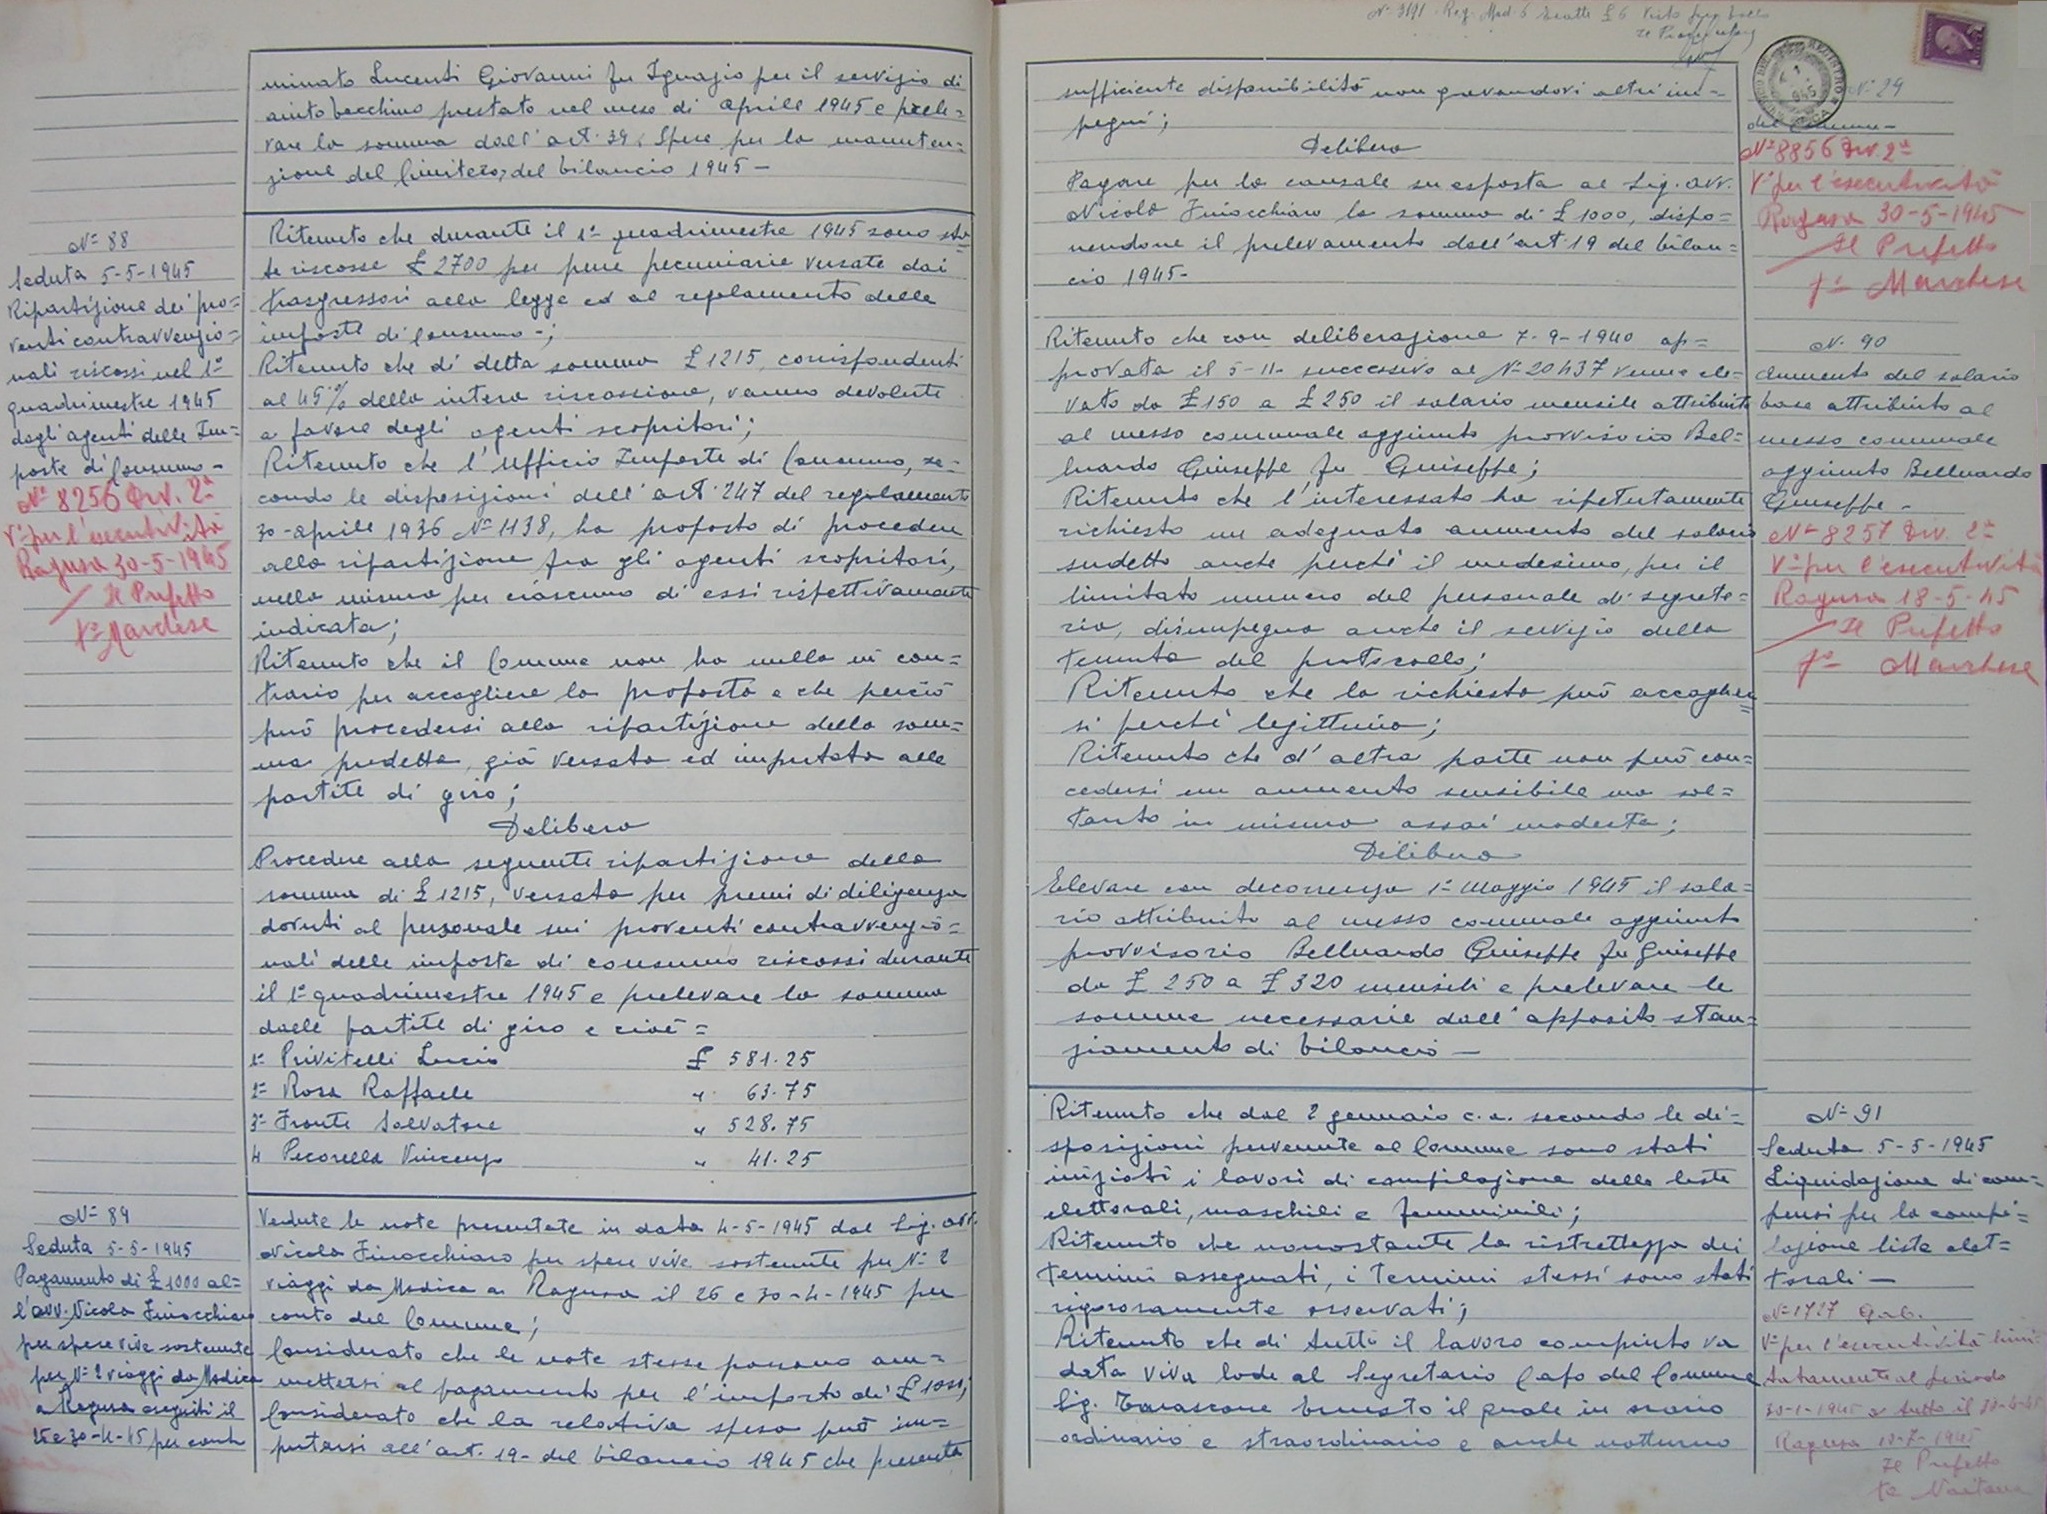 minato Lucenti Giovanni fu Ignazio per il servizio di
aiuto becchino prestato nel mese di aprile 1945 e prele=
vare la somma dall'art. 39: Spese per la manuten=
zione del Cimitero, del bilancio 1945 —
N= 88
Seduta 5-5-1945
Ripartizione dei pro=
venti contravvenzio=
nali riscossi nel 1°
quadrimestre 1945
dagli agenti delle Im=
poste di Consumo -
N° 8256 Div. 2ª
V° per l'esecutività
Ragusa 30-5-1945
Il Prefetto
f° Marchese
Ritenuto che durante il 1° quadrimestre 1945 sono sta=
te riscosse £ 2700 per pene pecuniarie versate dai
trasgressori alla legge ed al regolamento delle
imposte di Consumo -;
Ritenuto che di detta somma £ 1215, corrispondenti
al 45% della intera riscossione, vanno devolute
a favore degli agenti scopritori;
Ritenuto che l'Ufficio Imposte di Consumo, se=
condo le disposizioni dell'art. 247 del regolamento
30-aprile 1936 N° 1138, ha proposto di procedere
alla ripartizione fra gli agenti scopritori,
nella misura per ciascuno di essi rispettivamente
indicata;
Ritenuto che il Comune non ha nulla in con=
trario per accogliere la proposta e che perciò
può procedersi alla ripartizione della som=
ma predetta, già versata ed imputata alle
partite di giro;
Delibera
Procedere alla seguente ripartizione della
somma di £ 1215, versata per premi di diligenza
dovuti al personale sui proventi contravvenzio=
nali delle imposte di consumo riscossi durante
il 1° quadrimestre 1945 e prelevare la somma
dalle partite di giro e cioè =
1= Privitelli Lucio £ 581.25
2= Rosa Raffaele " 63.75
3= Fronte Salvatore " 528.75
4 Pecorella Vincenzo " 41.25
N= 89
Seduta 5-5-1945
Pagamento di £ 1000 al=
l'avv. Nicola Finocchiaro
per spese vive sostenute
per N° 2 viaggi da Modica
a Ragusa eseguiti il
26 e 30-4-45 per conto
Vedute le note presentate in data 4-5-1945 dal Sig. avv.
Nicola Finocchiaro per spese vive sostenute per N° 2
viaggi da Modica a Ragusa il 26 e 30-4-1945 per
conto del Comune;
Considerato che le note stesse possono am=
mettersi al pagamento per l'importo di £ 1000;
Considerato che la relativa spesa può im=
putarsi all'art. 19- del bilancio 1945 che presenta
N° 3191 Reg. Mod. 6 Esatte £ 6
N° 29
sufficiente disponibilità non gravandovi altri im=
pegni;
Delibera
Pagare per la causale su esposta al Sig. avv.
Nicola Finocchiaro la somma di £ 1000, dispo=
nendone il prelevamento dall'art. 19 del bilan=
cio 1945-
del Comune -
N° 8856 Div. 2ª
V° per l'esecutività
Ragusa 30-5-1945
Il Prefetto
f° Marchese
Ritenuto che con deliberazione 7-9-1940 ap=
provata il 5-11- successivo al N° 20437 venne ele=
vato da £ 150 a £ 250 il salario mensile attribuito
al messo comunale aggiunto provvisorio Bel=
luardo Giuseppe fu Giuseppe;
Ritenuto che l'interessato ha ripetutamente
richiesto un adeguato aumento del salario
sudetto anche perché il medesimo, per il
limitato numero del personale di segrete=
ria, disimpegna anche il servizio della
tenuta del protocollo;
Ritenuto che la richiesta può accoglier=
si perché legittima;
Ritenuto che d'altra parte non può con=
cedersi un aumento sensibile ma sol=
tanto in misura assai modesta;
Delibera
Elevare con decorrenza 1° Maggio 1945 il sala=
rio attribuito al messo comunale aggiunto
provvisorio Belluardo Giuseppe fu Giuseppe
da £ 250 a £ 320 mensili e prelevare le
somme necessarie dall'apposito stan=
ziamento di bilancio —
N. 90
Aumento del salario
base attribuito al
messo comunale
aggiunto Belluardo
Giuseppe -
N° 8257 Div. 2ª
V° per l'esecutività
Ragusa 18-5-45
Il Prefetto
f° Marchese
Ritenuto che dal 2 gennaio c.a. secondo le di=
sposizioni pervenute al Comune sono stati
iniziati i lavori di compilazione delle liste
elettorali, maschili e femminili;
Ritenuto che nonostante la ristrettezza dei
termini assegnati, i termini stessi sono stati
rigorosamente osservati;
Ritenuto che di tutto il lavoro compiuto va
data viva lode al Segretario Capo del Comune
Sig. Tarascone Ernesto il quale in orario
ordinario e straordinario e anche notturno
N= 91
Seduta 5-5-1945
Liquidazione di com=
pensi per la compi=
lazione liste elet=
torali —
N° 1727 Gab.
V° per l'esecutività limi=
tatamente al periodo
30-1-1945 a tutto il
Ragusa 10-7-1945
Il Prefetto